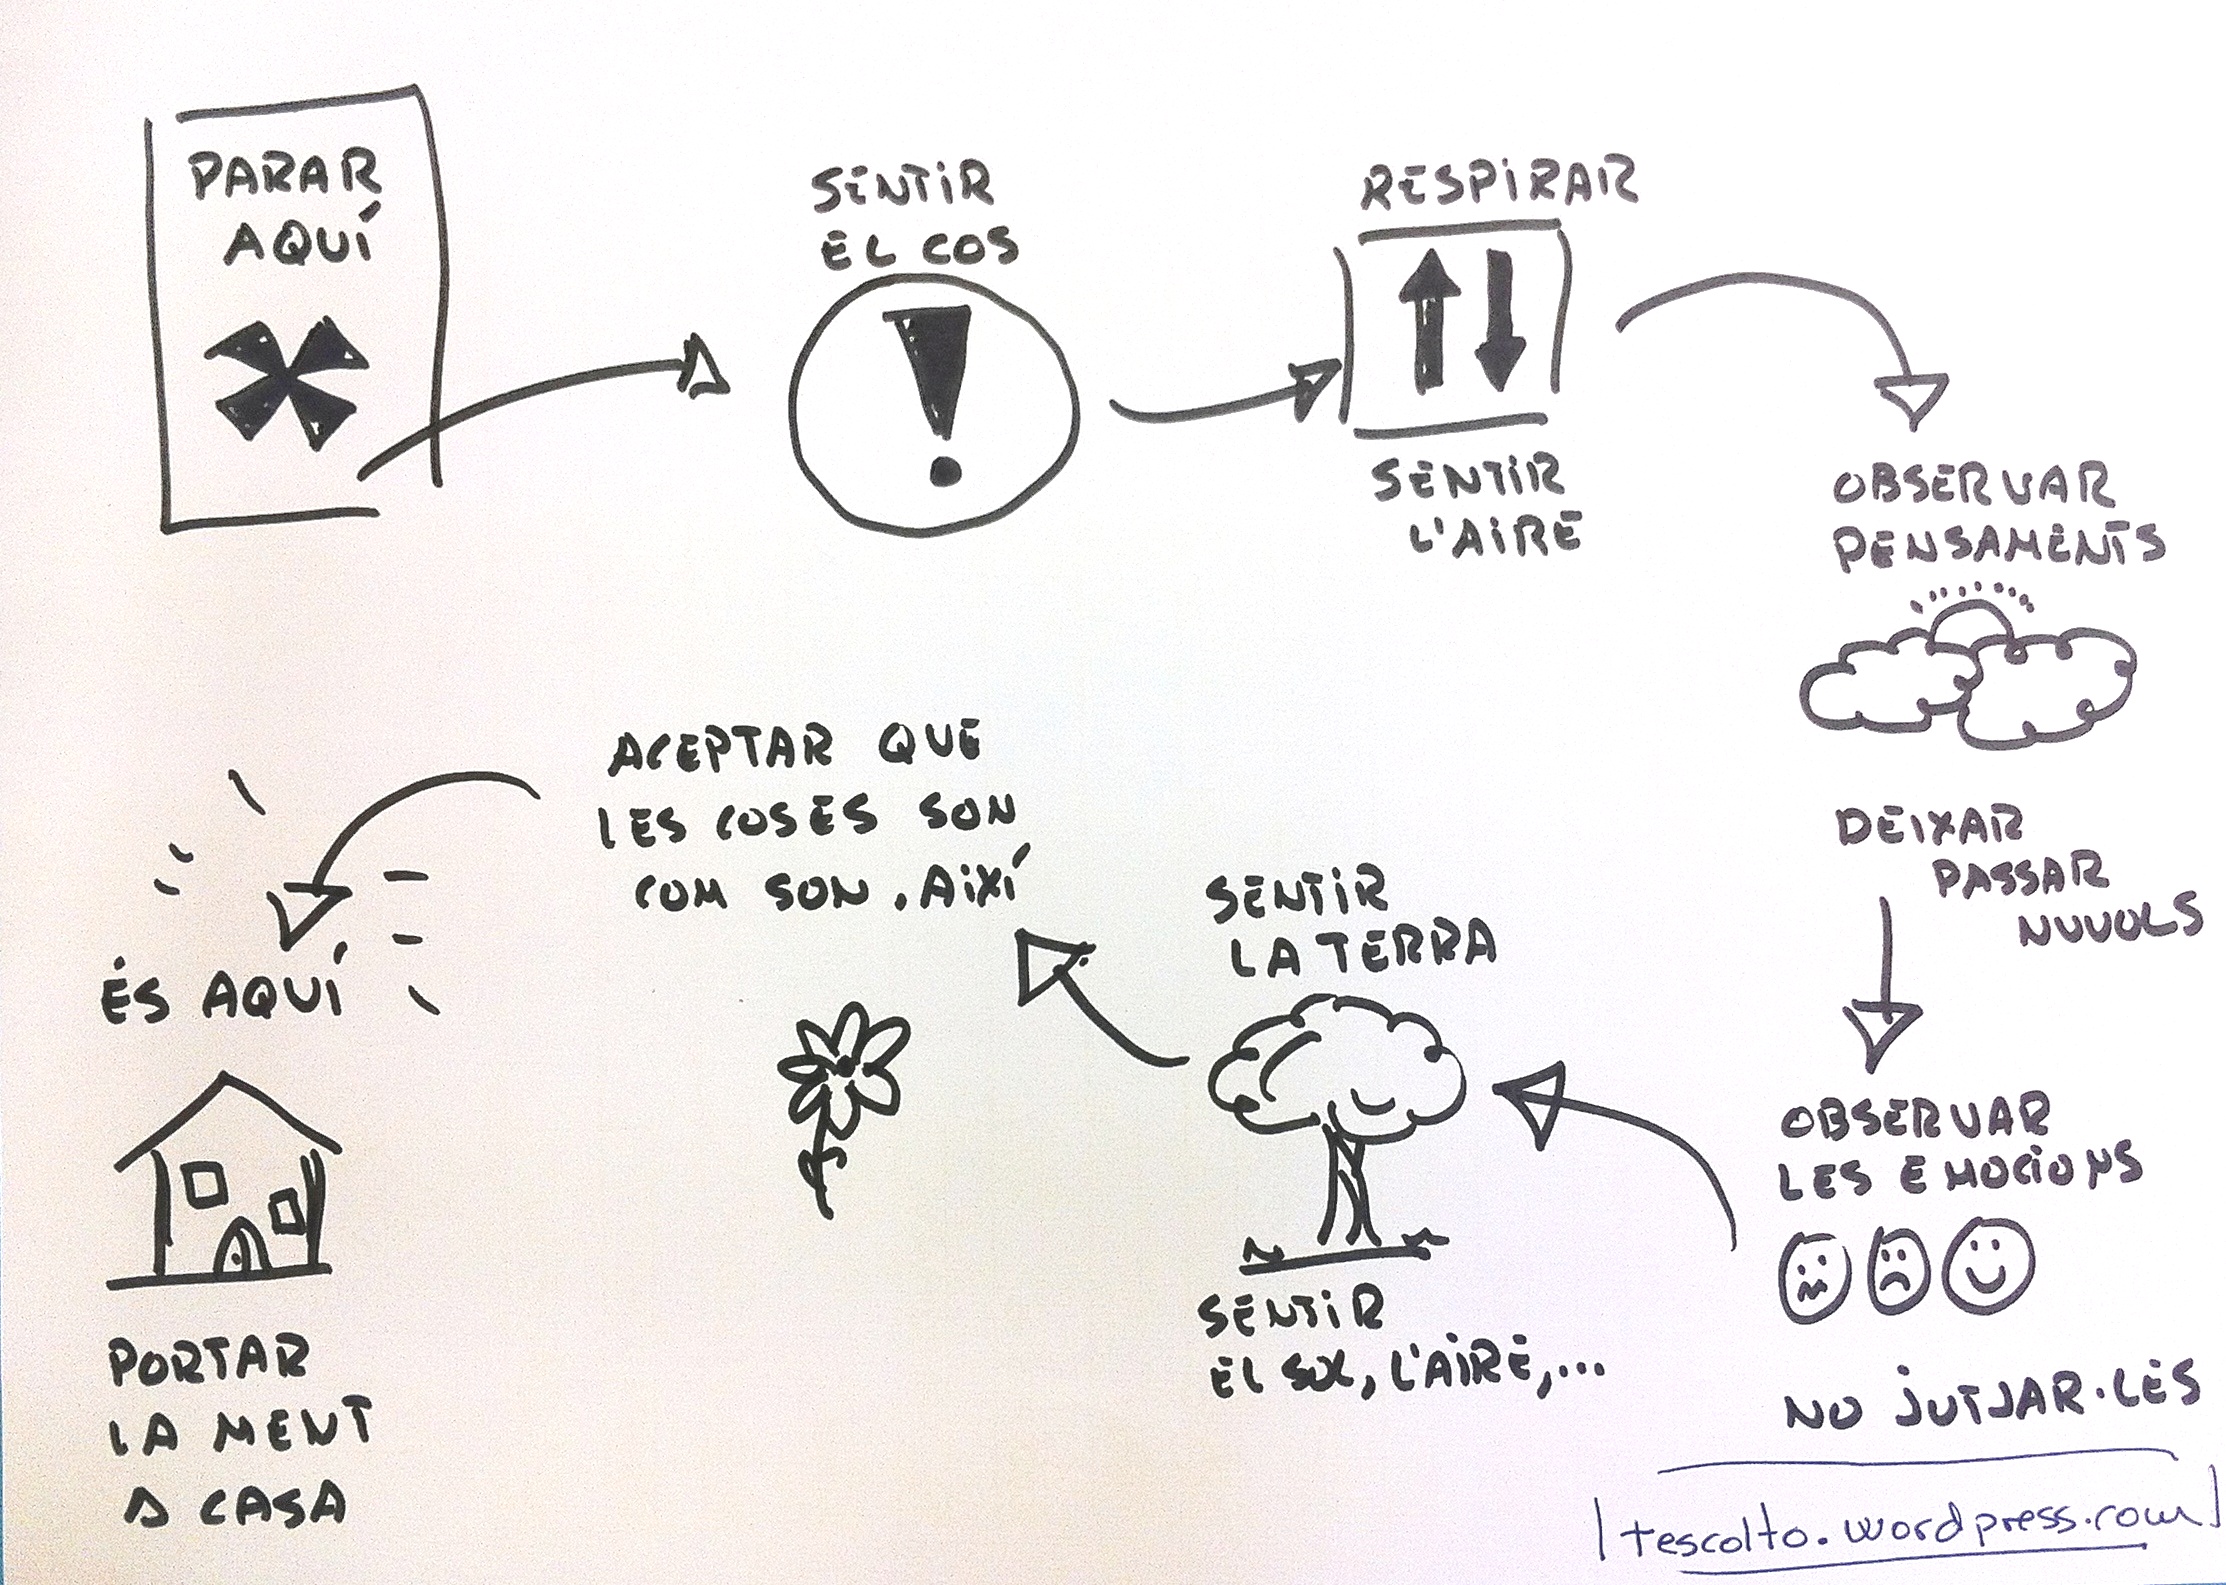 PARAR
AQUÍ
SENTIR
EL COS
RESPIRAR
SENTIR
L'AIRE
OBSERVAR
PENSAMENTS
DEIXAR
PASSAR
NUVOLS
OBSERVAR
LES EMOCIONS
NO JUTJAR·LES
SENTIR
LA TERRA
SENTIR
EL SOL, L'AIRE,...
ACEPTAR QUE
LES COSES SON
COM SON. AIXÍ
ÉS AQUÍ
PORTAR
LA MENT
A CASA
tescolto.wordpress.com